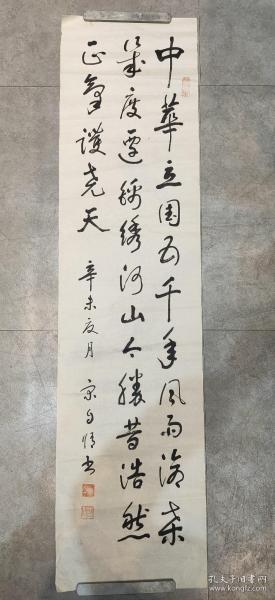 中華立国五千年風雨滄桑
幾度遷錦绣河山今勝昔浩然
正氣護尧天
辛未夏月 书
孔夫子旧书网